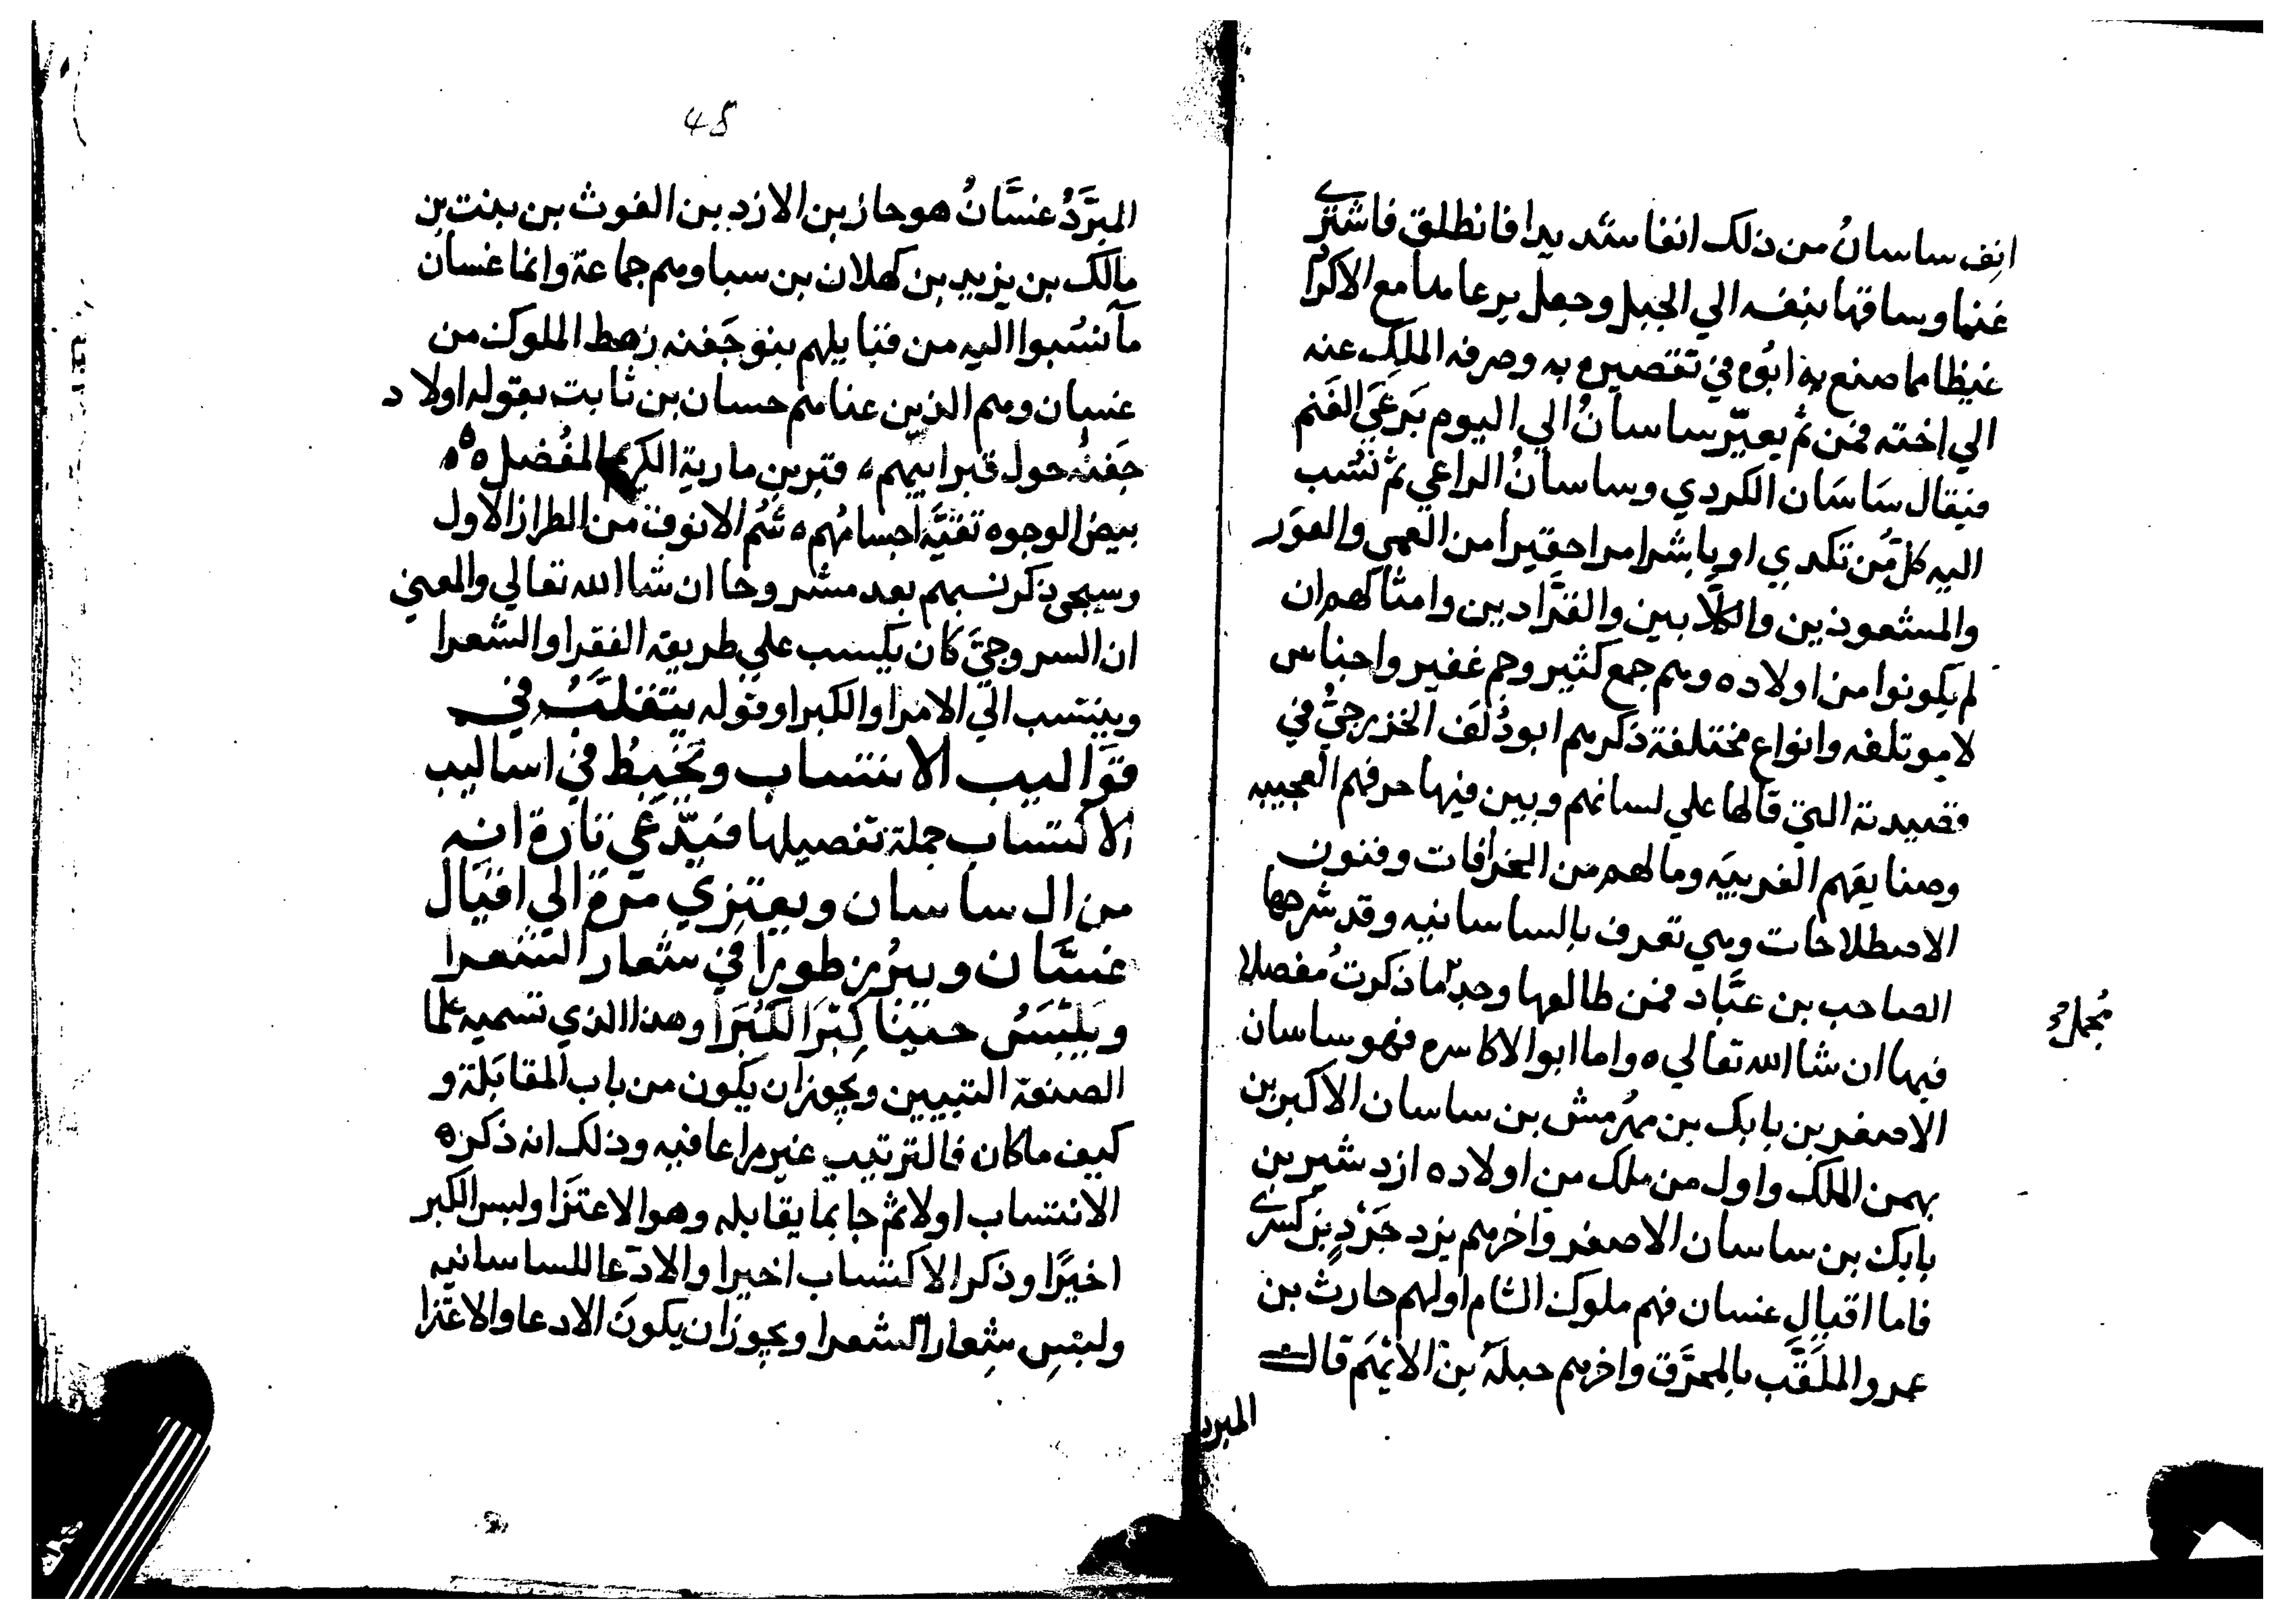 انِف ساسانُ من ذلك انفا شديدا فانطلق فاشترى
غنما وساقها بنفسه الي الجبل وجعل يرعاها مع الاكراد
غيظا مما صنع به ابوُه في تقصيره به وصرفه الملِك عنه
الي اخته فمن ثم يعيّر ساسانُ الي اليوم برَعَي الغَنم
فيقال سَاسَان الكردي وساسانُ الراعي ثم نُسُب
اليه كلّ مَن تكدي او باشر امرا حقيرا من العمي والعوَر
والمشعوذين والكلّابين والقرَّادين وامثالهم ان
لم يكونوا من اولاده وهم جمع كثير وجم غفير واجناس
لا موتلفه وانواع مختلفة ذكرهم ابو دُلَف الخزرجيُّ في
قصيدتة التي قالها علي لسانهم وبين فيها حرفهم العجيبه
وصنايعَهم الغريبيَه وما لهم من الخرافات وفنون
الاصطلاحات وهي تعرف بالساسانيه وقد شرحها
الصاحب بن عبَّاد فمن طالعها وجد ما ذكرتُ مفصلا
مجمل
فيها ان شا الله تعالي ه واما ابو الاكاسره فهو ساسان
الاصغر بن بابك بن مهُرمش بن ساسان الاكبر بن
بهمن الملك واول من ملك من اولاده ازدشير بن
بابك بن ساسان الاصغر واخرهم يزدجَرْدِ بن كسرى
فاما اقيال غسان فهم ملوك الشام اولهم حارث بن
عمرو الملَقَّب بالمحرَّق واخرهم جبلَة بن الايْهَم قال
المبرد
48
المبرَّدُ غسَّانُ هو حاز بن الازد بن الغوث بن بنت بن
مالك بن يزيد بن كهلان بن سبا وهم جماعة وانما غسان
مآ نسُبوا اليه من قبايلهم بنو جَفنه رهط الملوك من
غسان وهم الذين عناهم حسان بن ثابت بقوله اولاد
جَفنهُ حول قبر ابيهم، قبر بن مارية الكريم المفُضل ه ه
بيض الوجوه نقيَّة احسابهُم ه شُم الانوف من الطراز الاول
وسيجي ذكر نسبهم بعد مشروحا ان شا الله تعالي والمعني
ان السروجيَّ كان يكسب علي طريقه الفقرا والشعرا
وينتسب الي الامرا والكبرا وقوله يتقلَّبُ في
قوَاليب الانتساب وَيخَبِطُ في اساليب
الاكتساب جملة تفصيلها فيَدّعي تارة انه
من ال ساسان ويعتزي مرة الي اقيَال
غسَّان ويبرُز طورا في شعار الشعرا
وَيلبَسُ حينا كِبْرَ الكُبَرَا وهذا الذي تسميه علما
الصنعة التبيين ويجوز ان يكون من باب المقابَلة و
كيف ما كان فالترتيب غير مراعا فيه وذلك انه ذكره
الانتساب اولا ثم جا بما يقابله وهو الاعتزَا ولبس الكبر
اخيًرا وذكر الاكتساب اخيرا والادّعا للساسانيه
ولبَس شِعار الشعرا ويجوز ان يكون الادعا والاعتزا